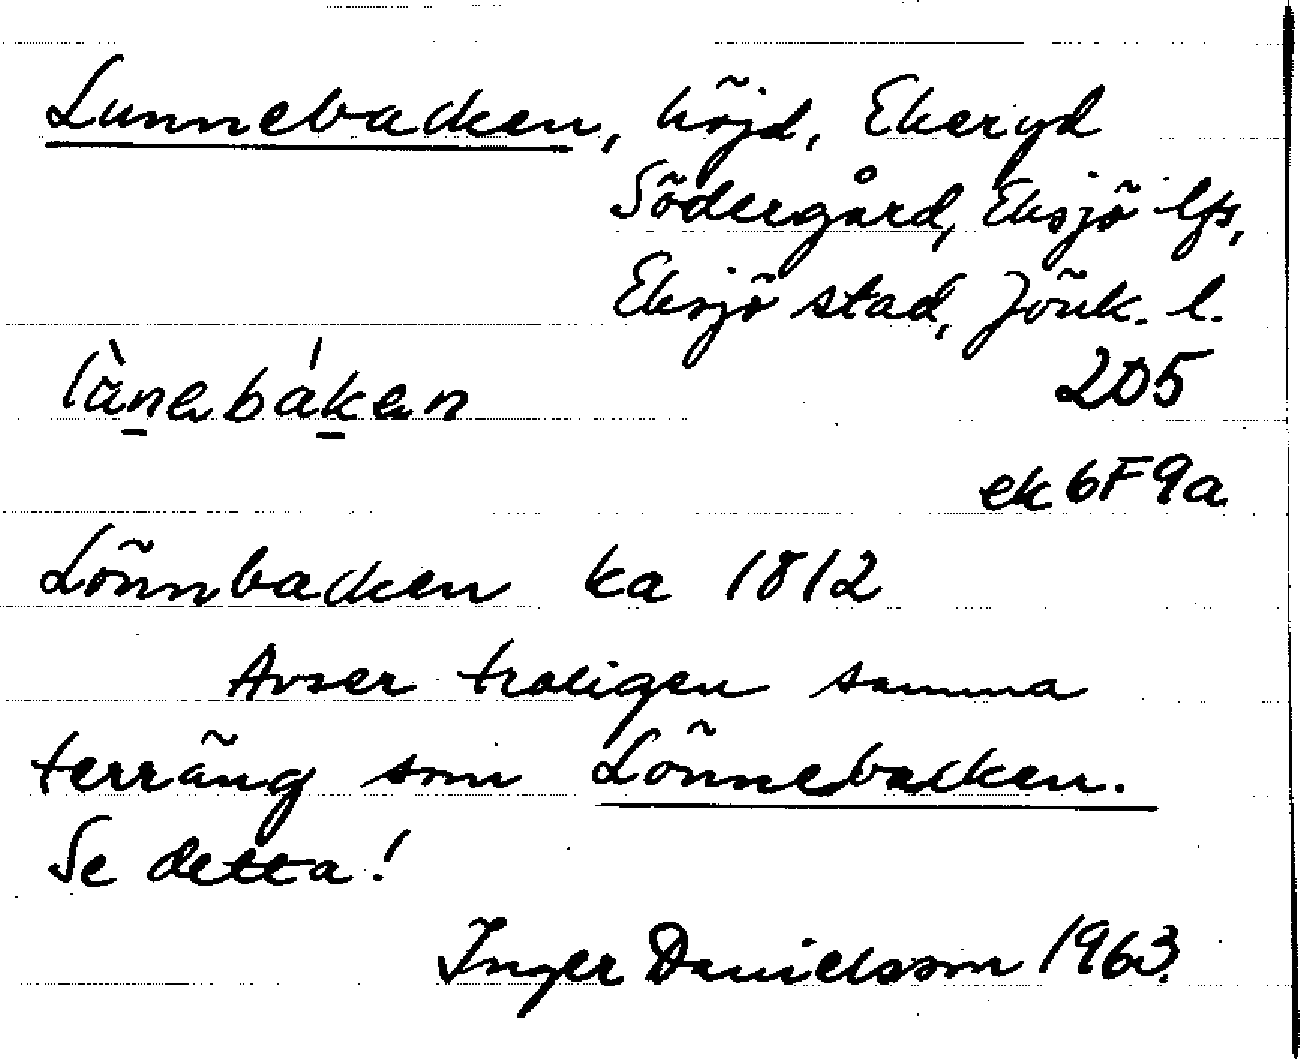 Lunnebacken, höjd, Ekeryd
Södergård, Eksjö lfs,
Eksjö stad, Jönk. l.
lànebáken 205
ek 6F9a
Lönnbacken ka 1812
Avser troligen samma
terräng som Lönnebacken.
Se detta!
Inger Danielsson 1963.